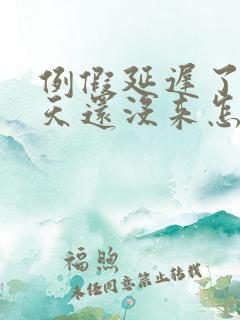 例假延遲了
天還没来怎
福煦
未经同意禁止转载